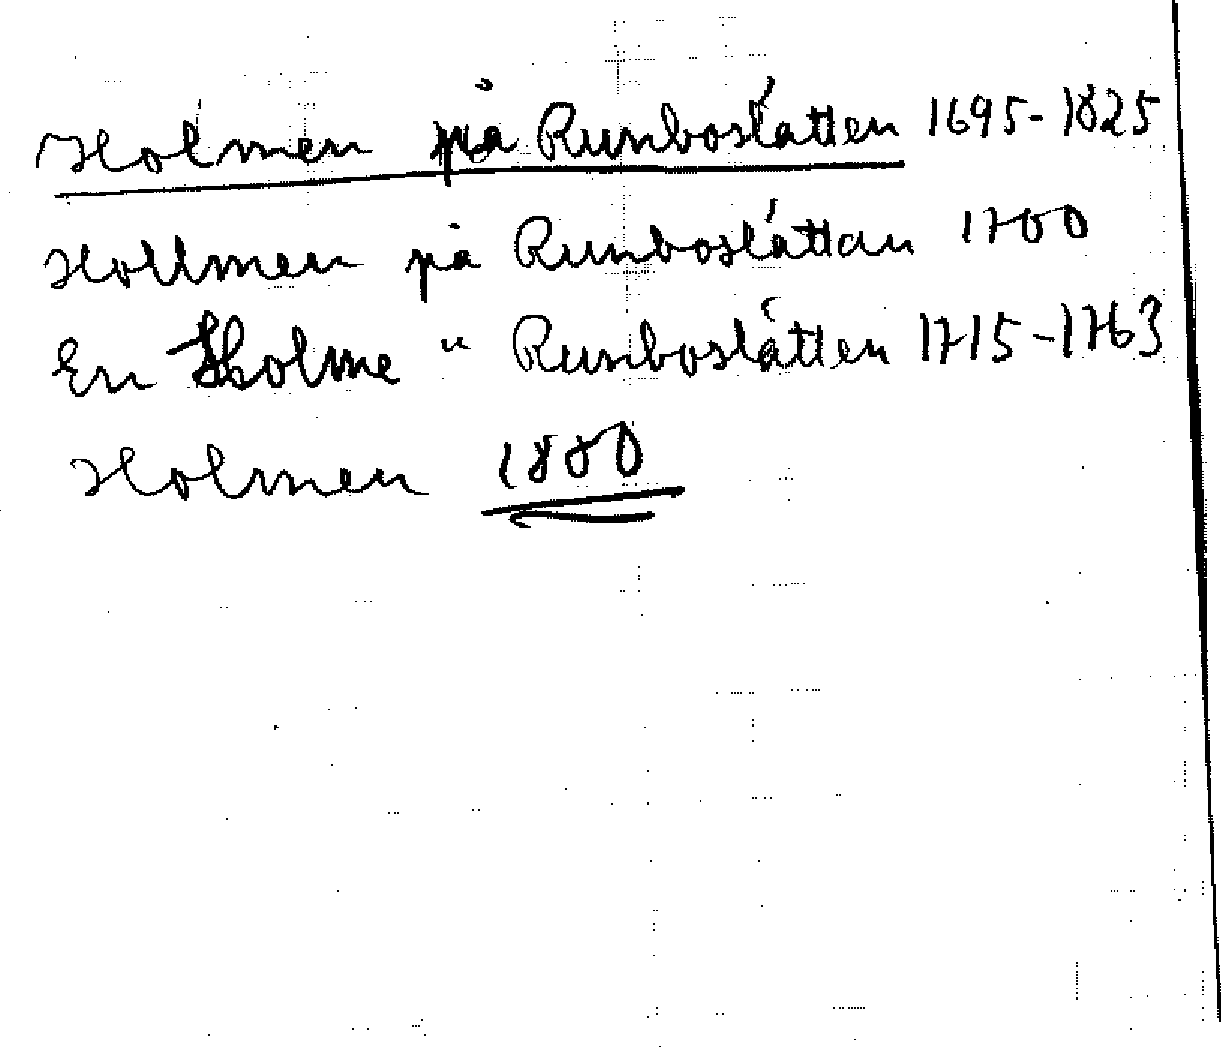 Holmen på Runboslätten 1695-1825
Hollmen på Runboslättan 1700
En Holme " Runboslätten 1715-1763
Holmen 1800